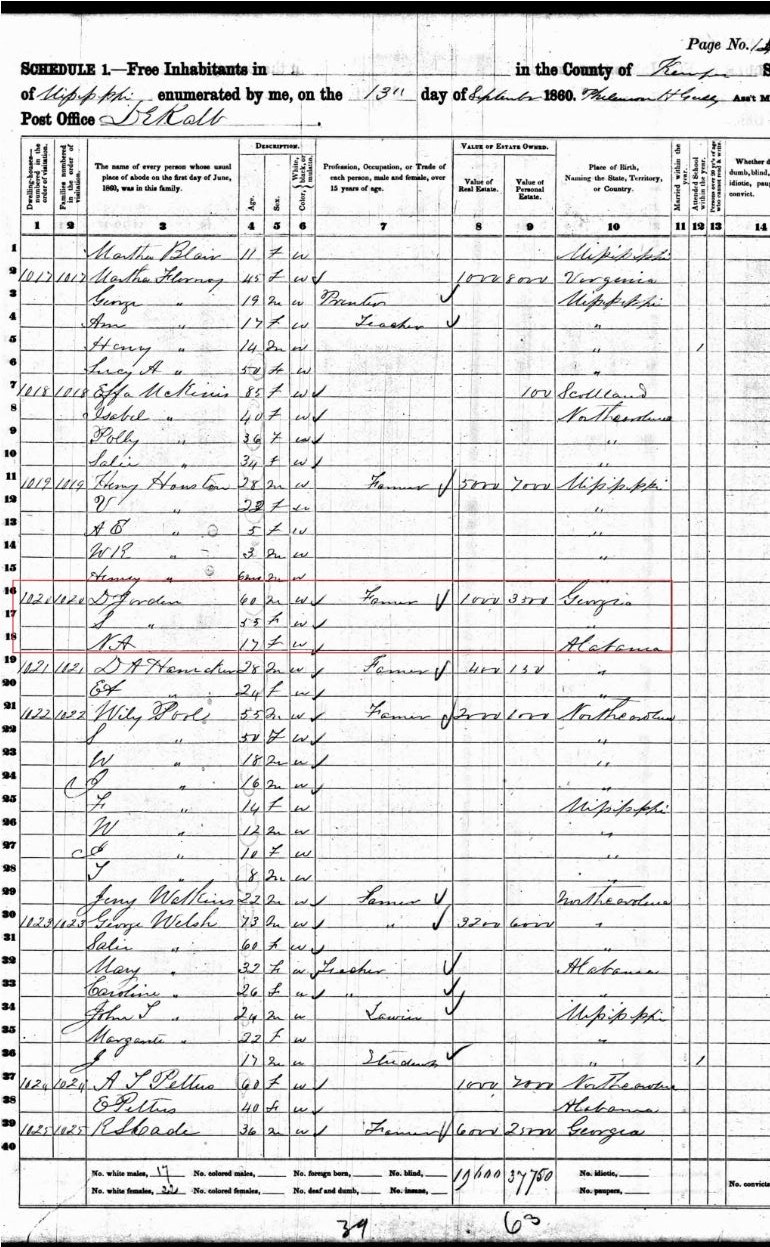 Page No.
SCHEDULE 1.—Free Inhabitants in in the County of
of Mississippi enumerated by me, on the 13" day of September 1860. Ass't M
Post Office DeKalb
DESCRIPTION. VALUE OF ESTATE OWNED.
Dwelling-houses—numbered in the order of visitation. Families numbered in the order of visitation. The name of every person whose usual place of abode on the first day of June, 1860, was in this family. Age. Sex. Color, White, black, or mulatto. Profession, Occupation, or Trade of each person, male and female, over 15 years of age. Value of Real Estate. Value of Personal Estate. Place of Birth, Naming the State, Territory, or Country. Married within the year. Attended School within the year. Persons over 20 y'rs of age who cannot read & write. Whether d dumb, blind, idiotic, pau convict.
1 2 3 4 5 6 7 8 9 10 11 12 13 14
1 Martha Blair 11 f w Mississippi
2 1017 1017 Martha 45 f w 1000 8000 Virginia
3 George " 19 m w Printer Mississippi
4 Ann " 17 f w Teacher "
5 Henry " 14 m w " 1
6 Lucy A " 50 f w "
7 1018 1018 Effa McKinis 85 f w 100 Scotland
8 Isabel " 40 f w Northcarolina
9 Polly " 36 f w "
10 Salie " 34 f w "
11 1019 1019 Henry Houston 28 m w Farmer 5000 7000 Mississippi
12 V " 22 f w "
13 A E " 5 f w "
14 W R " 3 m w "
15 Henry " 6m m w "
16 1020 1020 D Jorden 60 m w Farmer 1000 3500 Georgia
17 S " 55 f w "
18 N A 17 f w Alabama
19 1021 1021 D A 28 m w Farmer 400 150 "
20 " 24 f w "
21 1022 1022 Wily Pool 55 m w Farmer 2000 1000 Northcarolina
22 S " 50 f w "
23 W " 18 m w "
24 J " 16 m w "
25 F " 14 f w Mississippi
26 W " 12 m w "
27 J " 10 f w "
28 T " 8 m w
29 Jerry Watkins 22 m w Farmer Northcarolina
30 1023 1023 George Welsh 73 m w " 3200 6000 "
31 Salie " 60 f w "
32 Mary " 32 f w Teacher Alabama
33 Caroline " 26 f w " "
34 John T " 24 m w Mississippi
35 " 22 f w "
36 J 17 m w Student " 1
37 1024 1024 A T Pettus 60 f w 1000 7000 Northcarolina
38 E Pettus 40 f w Alabama
39 1025 1025 R Slade 36 m w Farmer 6000 2500 Georgia
40
No. white males, 17 No. colored males, No. foreign born, No. blind, 19600 37750 No. idiotic,
No. white females, 22 No. colored females, No. deaf and dumb, No. insane, No. paupers, No. convicts
39 63